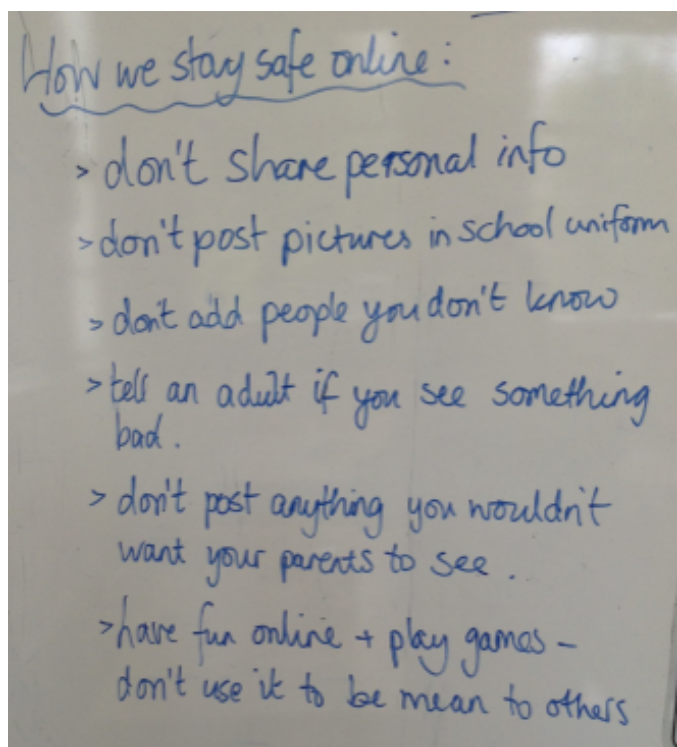 How we stay safe online:
> don't share personal info
> don't post pictures in school uniform
> don't add people you don't know
> tell an adult if you see something
bad.
> don't post anything you wouldn't
want your parents to see.
> have fun online + play games -
don't use it to be mean to others